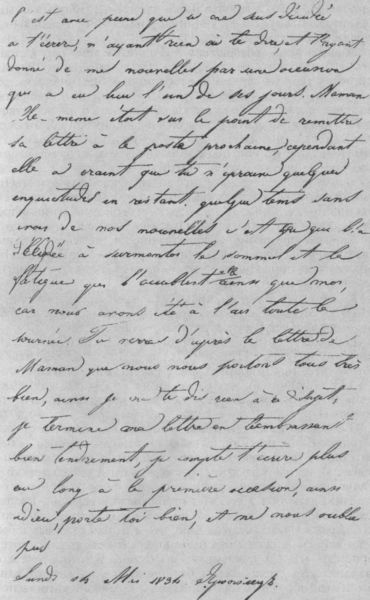 C'est avec peine que je me suis décidée
à t'écrire, n'ayant rien à te dire, et t'ayant
donné de mes nouvelles par une occasion
qui a eu lieu l'un de ces jours. Maman
Elle-même était sur le point de remettre
sa lettre à la poste prochaine, cependant
elle a craint que tu n'éprouve quelques
inquiétudes en restant quelque tems sans
avoir de nos nouvelles c'est ce qui l'a
décidée à surmonter le sommeil et la
fatigue qui l'accablent ainsi que moi,
car nous avons été à l'air toute la
journée. Tu verras d'après la lettre de
Maman que nous nous portons tous très
bien, ainsi je ne te dis rien à ce sujet,
je termine ma lettre en t'embrassant
bien tendrement, je compte t'écrire plus
au long à la première occasion, ainsi
adieu, porte toi bien, et ne nous oublie
pas
Lundi 14 Mai 1834